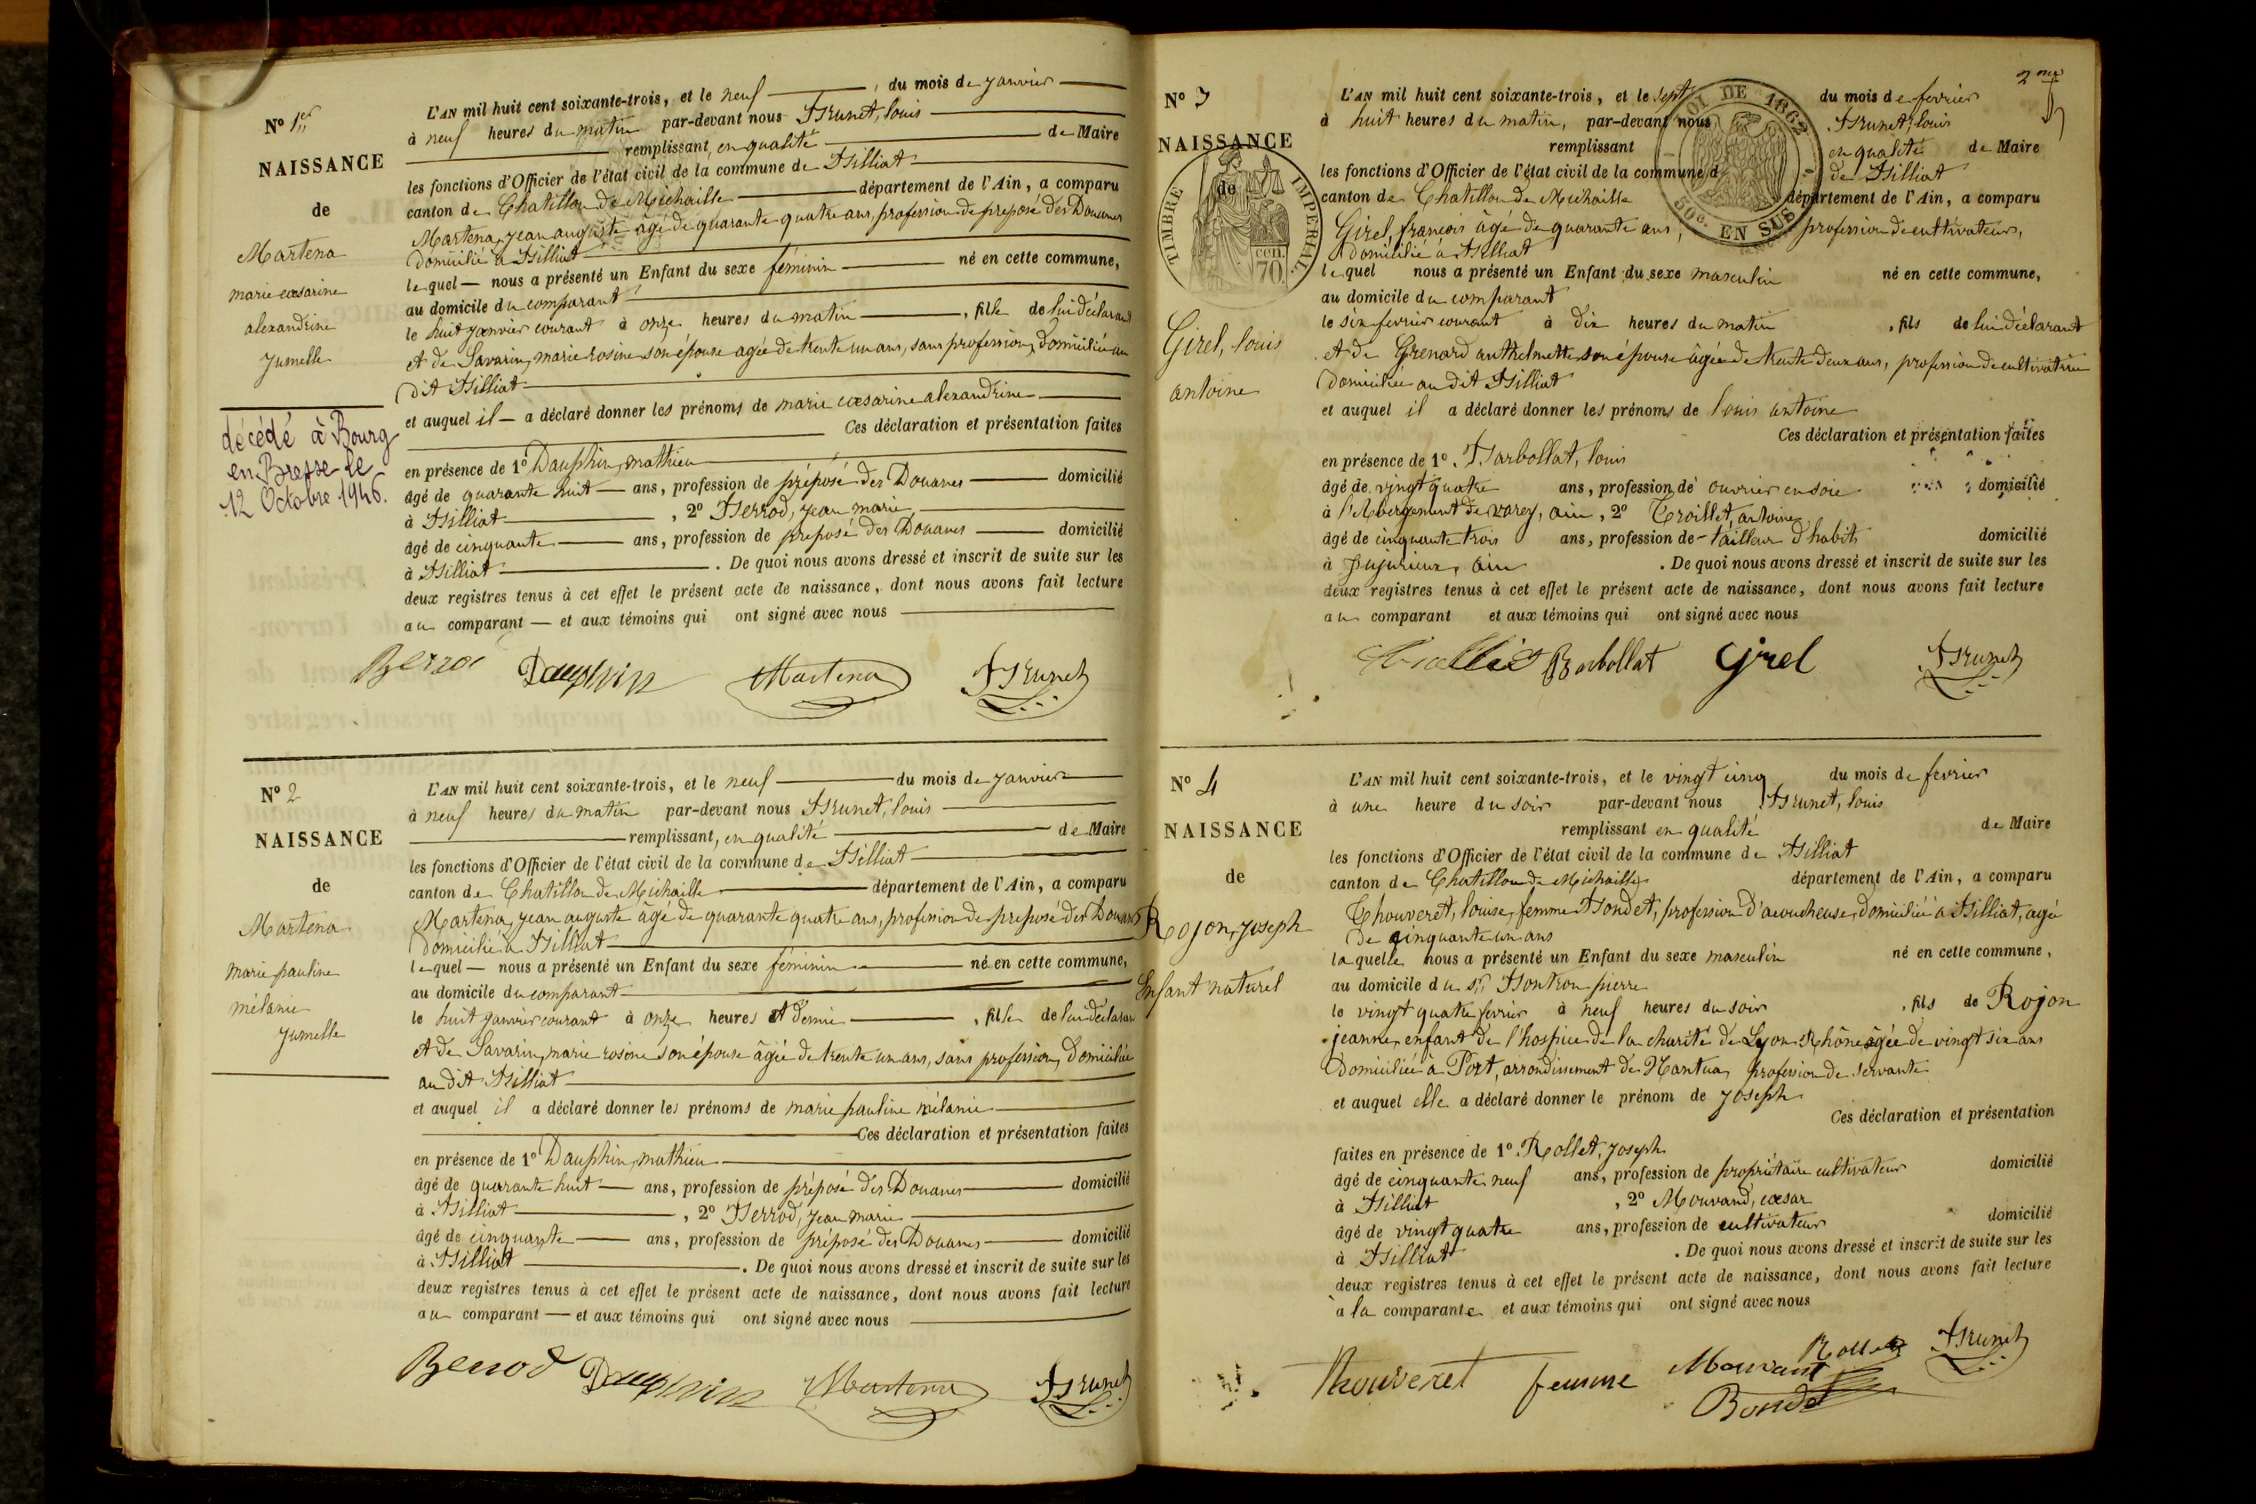 N° 1er
NAISSANCE
de
Martena
marie cœsarine
alexandrine
jumelle
décédé à Bourg
en Bresse le
12 Octobre 1946.
L'AN mil huit cent soixante-trois, et le neuf du mois de janvier
à neuf heures du matin par-devant nous Brunet, louis
remplissant, en qualité de Maire
les fonctions d'Officier de l'état civil de la commune de Billiat
canton de Chatillon de Michaille département de l'Ain, a comparu
Martena, jean auguste âgé de quarante quatre ans, profession de préposé des Douanes
domicilié à Billiat
lequel nous a présenté un Enfant du sexe féminin né en cette commune,
au domicile du comparant
le huit janvier courant à onze heures du matin, fille de lui déclarant
et de Savarin, marie rosine son épouse agée de trente un ans, sans profession, domiciliée au
dit Billiat
et auquel il a déclaré donner les prénoms de marie cœsarine alexandrine
Ces déclaration et présentation faites
en présence de 1° Dauphin, mathieu
âgé de quarante huit ans, profession de préposé des Douanes domicilié
à Billiat, 2° Berrod, jean marie,
âgé de cinquante ans, profession de préposé des Douanes domicilié
à Billiat. De quoi nous avons dressé et inscrit de suite sur les
deux registres tenus à cet effet le présent acte de naissance, dont nous avons fait lecture
au comparant et aux témoins qui ont signé avec nous
Berrod Dauphin Martena Brunet
N° 2
NAISSANCE
de
Martena
marie pauline
mélanie
jumelle
L'AN mil huit cent soixante-trois, et le neuf du mois de janvier
à neuf heures du matin par-devant nous Brunet, louis
remplissant, en qualité de Maire
les fonctions d'Officier de l'état civil de la commune de Billiat
canton de Chatillon de Michaille département de l'Ain, a comparu
Martena, jean auguste âgé de quarante quatre ans, profession de preposé des Douanes
domicilié à Billiat
lequel nous a présenté un Enfant du sexe féminin né en cette commune,
au domicile du comparant
le huit janvier courant à onze heures et demie, fille de lui déclarant
et de Savarin, marie rosine son épouse âgée de trente un ans, sans profession, domiciliée
au dit Billiat
et auquel il a déclaré donner les prénoms de marie pauline mélanie
Ces déclaration et présentation faites
en présence de 1° Dauphin, mathieu
âgé de quarante huit ans, profession de préposé des Douanes domicilié
à Billiat, 2° Berrod, jean marie
âgé de cinquante ans, profession de préposé des Douanes domicilié
à Billiat. De quoi nous avons dressé et inscrit de suite sur les
deux registres tenus à cet effet le présent acte de naissance, dont nous avons fait lecture
au comparant et aux témoins qui ont signé avec nous
Berrod Dauphin Martena Brunet
2me
N° 3
NAISSANCE
de
TIMBRE IMPERIAL
cen.
70
LOI DE 1862
50c. EN SUS
Girel, louis
antoine
L'AN mil huit cent soixante-trois, et le sept du mois de fevrier
à huit heures du matin, par-devant nous Brunet, louis
remplissant en qualité de Maire
les fonctions d'Officier de l'état civil de la commune de Billiat
canton de Chatillon de Michaille département de l'Ain, a comparu
Girel, francois âgé de quarante ans, profession de cultivateur,
domicilié à Billiat
lequel nous a présenté un Enfant du sexe masculin né en cette commune,
au domicile du comparant
le six fevrier courant à dix heures du matin, fils de lui déclarant
et de Grenard anthelmette son épouse âgée de trente deux ans, profession de cultivatrice
domiciliée au dit Billiat
et auquel il a déclaré donner les prénoms de louis antoine
Ces déclaration et présentation faites
en présence de 1° Barbollat, louis
âgé de vingt quatre ans, profession de ouvrier en soie domicilié
à l'Abergement de varey, ain, 2° Troillet, antoine
âgé de cinquante trois ans, profession de tailleur d'habits domicilié
à jujurieux, ain. De quoi nous avons dressé et inscrit de suite sur les
deux registres tenus à cet effet le présent acte de naissance, dont nous avons fait lecture
au comparant et aux témoins qui ont signé avec nous
Barbollat Girel Brunet
N° 4
NAISSANCE
de
Rojon, joseph
Enfant naturel
L'AN mil huit cent soixante-trois, et le vingt cinq du mois de fevrier
à une heure du soir par-devant nous Brunet, louis
remplissant en qualité de Maire
les fonctions d'Officier de l'état civil de la commune de Billiat
canton de Chatillon de Michaille département de l'Ain, a comparu
Thouveret, louise, femme Bondet, profession d'acoucheuse, domiciliée à Billiat, agée
de cinquante un ans
laquelle nous a présenté un Enfant du sexe masculin né en cette commune,
au domicile du sr Bontron pierre
le vingt quatre fevrier à neuf heures du soir, fils de Rojon
jeanne, enfant de l'hospice de la charité de Lyon Rhône âgée de vingt six ans
domiciliée à Port, arrondissement de Nantua, profession de servante
et auquel elle a déclaré donner le prénom de joseph
Ces déclaration et présentation
faites en présence de 1° Rollet, joseph
âgé de cinquante neuf ans, profession de propriétaire cultivateur domicilié
à Billiat, 2° Mouvand, cœsar
âgé de vingt quatre ans, profession de cultivateur domicilié
à Billiat. De quoi nous avons dressé et inscrit de suite sur les
deux registres tenus à cet effet le présent acte de naissance, dont nous avons fait lecture
à la comparante et aux témoins qui ont signé avec nous
Thouveret femme Bondet Mouvant Rollet Brunet